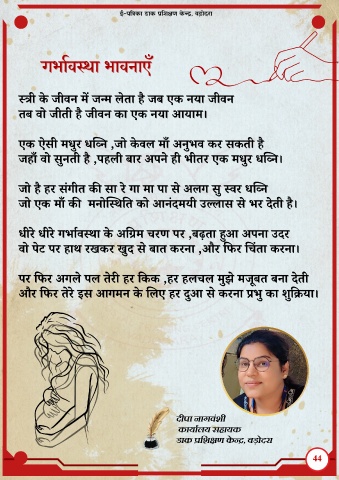 ई-पत्रिका डाक प्रशिक्षण केन्द्र, वड़ोदरा
गर्भावस्था भावनाएँ
स्त्री के जीवन में जन्म लेता है जब एक नया जीवन
तब वो जीती है जीवन का एक नया आयाम।
एक ऐसी मधुर धव्नि ,जो केवल माँ अनुभव कर सकती है
जहाँ वो सुनती है ,पहली बार अपने ही भीतर एक मधुर धव्नि।
जो है हर संगीत की सा रे गा मा पा से अलग सु स्वर धव्नि
जो एक माँ की मनोस्थिति को आनंदमयी उल्लास से भर देती है।
धीरे धीरे गर्भावस्था के अग्रिम चरण पर ,बढ़ता हुआ अपना उदर
वो पेट पर हाथ रखकर खुद से बात करना ,और फिर चिंता करना।
पर फिर अगले पल तेरी हर किक ,हर हलचल मुझे मजूबत बना देती
और फिर तेरे इस आगमन के लिए हर दुआ से करना प्रभु का शुक्रिया।
दीपा नागवंशी
कार्यालय सहायक
डाक प्रशिक्षण केन्द्र, वड़ोदरा
44